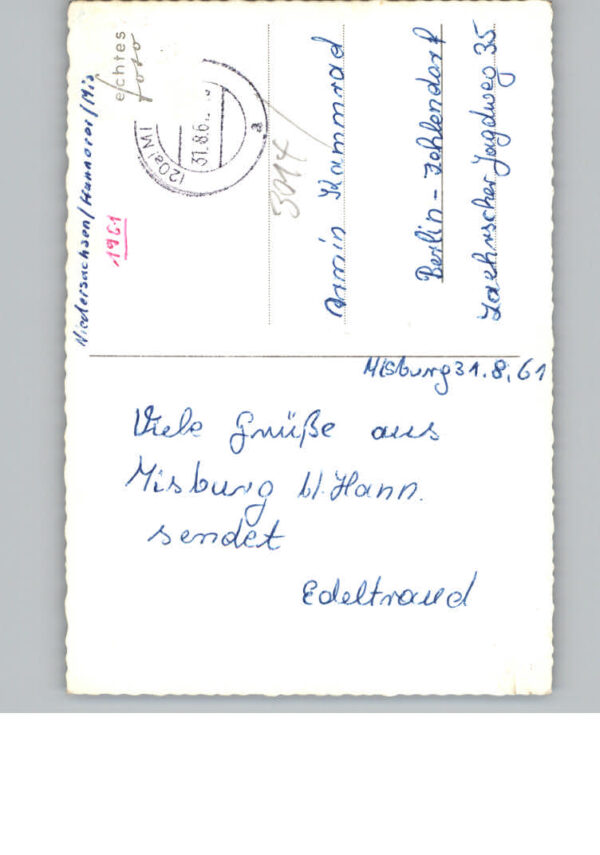 Misburg 31.8.61
Viele Grüße aus
Misburg b/. Hann.
sendet
Edeltraud
Armin Kammrad
Berlin-Zehlendorf
Laehrscher Jagdweg 35
Niedersachsen/Hannover/Mis
1961
echtes
foto
(20a) MI
31.8.6
a
3014